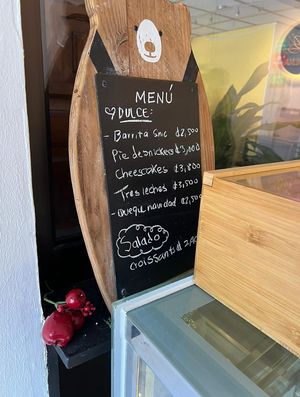 MENÚ
DULCE:
- Barrita Snic ₡2,500
Pie de snickers ₡3,000
Cheesecakes ₡3,800
Tres leches ₡3,500
Salado
Croissants ₡